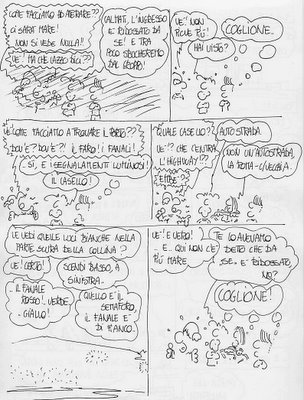 COME FACCIAMO AD ATTERARE??
CI SARA' MARE!
NON SI VEDE NULLA!!
UE'! MA CHE CAZZO DICI??
CALMATI, L'INGRESSO
E' RIDOSSATO DA
SE' E TRA
POCO SBOCHEREMO
DAL GROPPO!
UE'! NON
PIOVE PIU'!
HAI VISTO?
COGLIONE.
UE' COME FACCIATO A TROVARE IL PORTO??
DOV'E'? DOV'E'?! IL FARO! I FANALI!
SI, E I SEGNALAMENTI LUMINOSI!
IL CASELLO!
QUALE CASELLO?
UE'!? CHE C'ENTRA
L'HIGHWAY!??
EMBE'
AUTOSTRADA.
NON UN'AUTOSTRADA,
LA ROMA-C/VECCHIA.
LE VEDI QUELLE LUCI BIANCHE NELLA
PARTE SCURA DELLA COLLINA?
UE'! CERTO!
SCENDI BASSO, A
SINISTRA.
IL FANALE
ROSSO! VERDE
GIALLO!
QUELLO E' IL
SEMAFORO,
IL FANALE E'
DI FIANCO.
UE'! E' VERO!
E QUI NON C'E'
PIU' MARE
TE LO AVEVAMO
DETTO CHE DA
SE. E' RIDOSSATO,
NO?
COGLIONE!